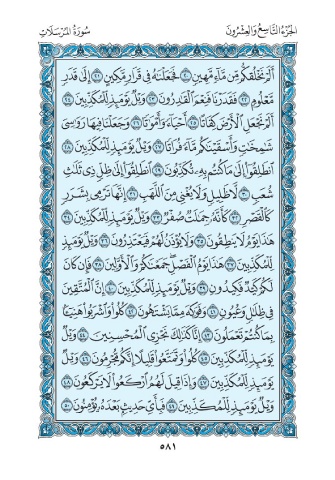 الجزء التاسع والعشرون
سورة المرسلات
ألم نخلقكم من ماء مهين ٢٠ فجعلناه في قرار مكين ٢١ إلى قدر
معلوم ٢٢ فقدرنا فنعم القادرون ٢٣ ويل يومئذ للمكذبين ٢٤
ألم نجعل الأرض كفاتا ٢٥ أحياء وأمواتا ٢٦ وجعلنا فيها رواسي
شامخات وأسقيناكم ماء فراتا ٢٧ ويل يومئذ للمكذبين ٢٨
انطلقوا إلى ما كنتم به تكذبون ٢٩ انطلقوا إلى ظل ذي ثلاث
شعب ٣٠ لا ظليل ولا يغني من اللهب ٣١ إنها ترمي بشرر
كالقصر ٣٢ كأنه جمالت صفر ٣٣ ويل يومئذ للمكذبين ٣٤
هذا يوم لا ينطقون ٣٥ ولا يؤذن لهم فيعتذرون ٣٦ ويل يومئذ
للمكذبين ٣٧ هذا يوم الفصل جمعناكم والأولين ٣٨ فإن كان
لكم كيد فكيدون ٣٩ ويل يومئذ للمكذبين ٤٠ إن المتقين
في ظلال وعيون ٤١ وفواكه مما يشتهون ٤٢ كلوا واشربوا هنيئا
بما كنتم تعملون ٤٣ إنا كذلك نجزي المحسنين ٤٤ ويل
يومئذ للمكذبين ٤٥ كلوا وتمتعوا قليلا إنكم مجرمون ٤٦ ويل
يومئذ للمكذبين ٤٧ وإذا قيل لهم اركعوا لا يركعون ٤٨
ويل يومئذ للمكذبين ٤٩ فبأي حديث بعده يؤمنون ٥٠
٥٨١